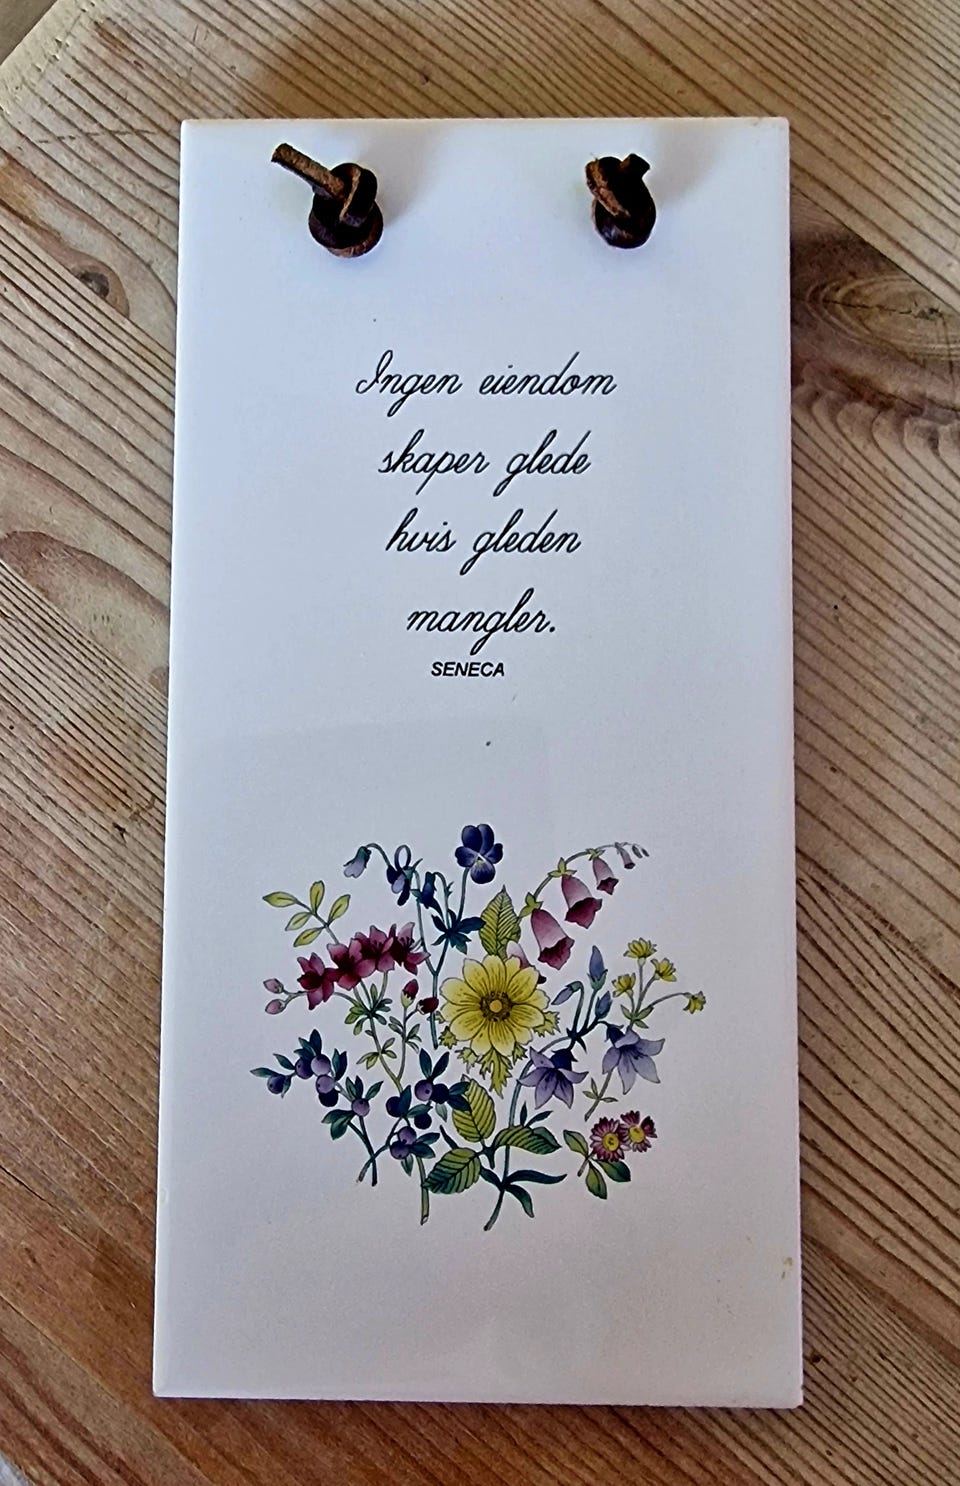 Ingen eiendom
skaper glede
hvis gleden
mangler.
SENECA